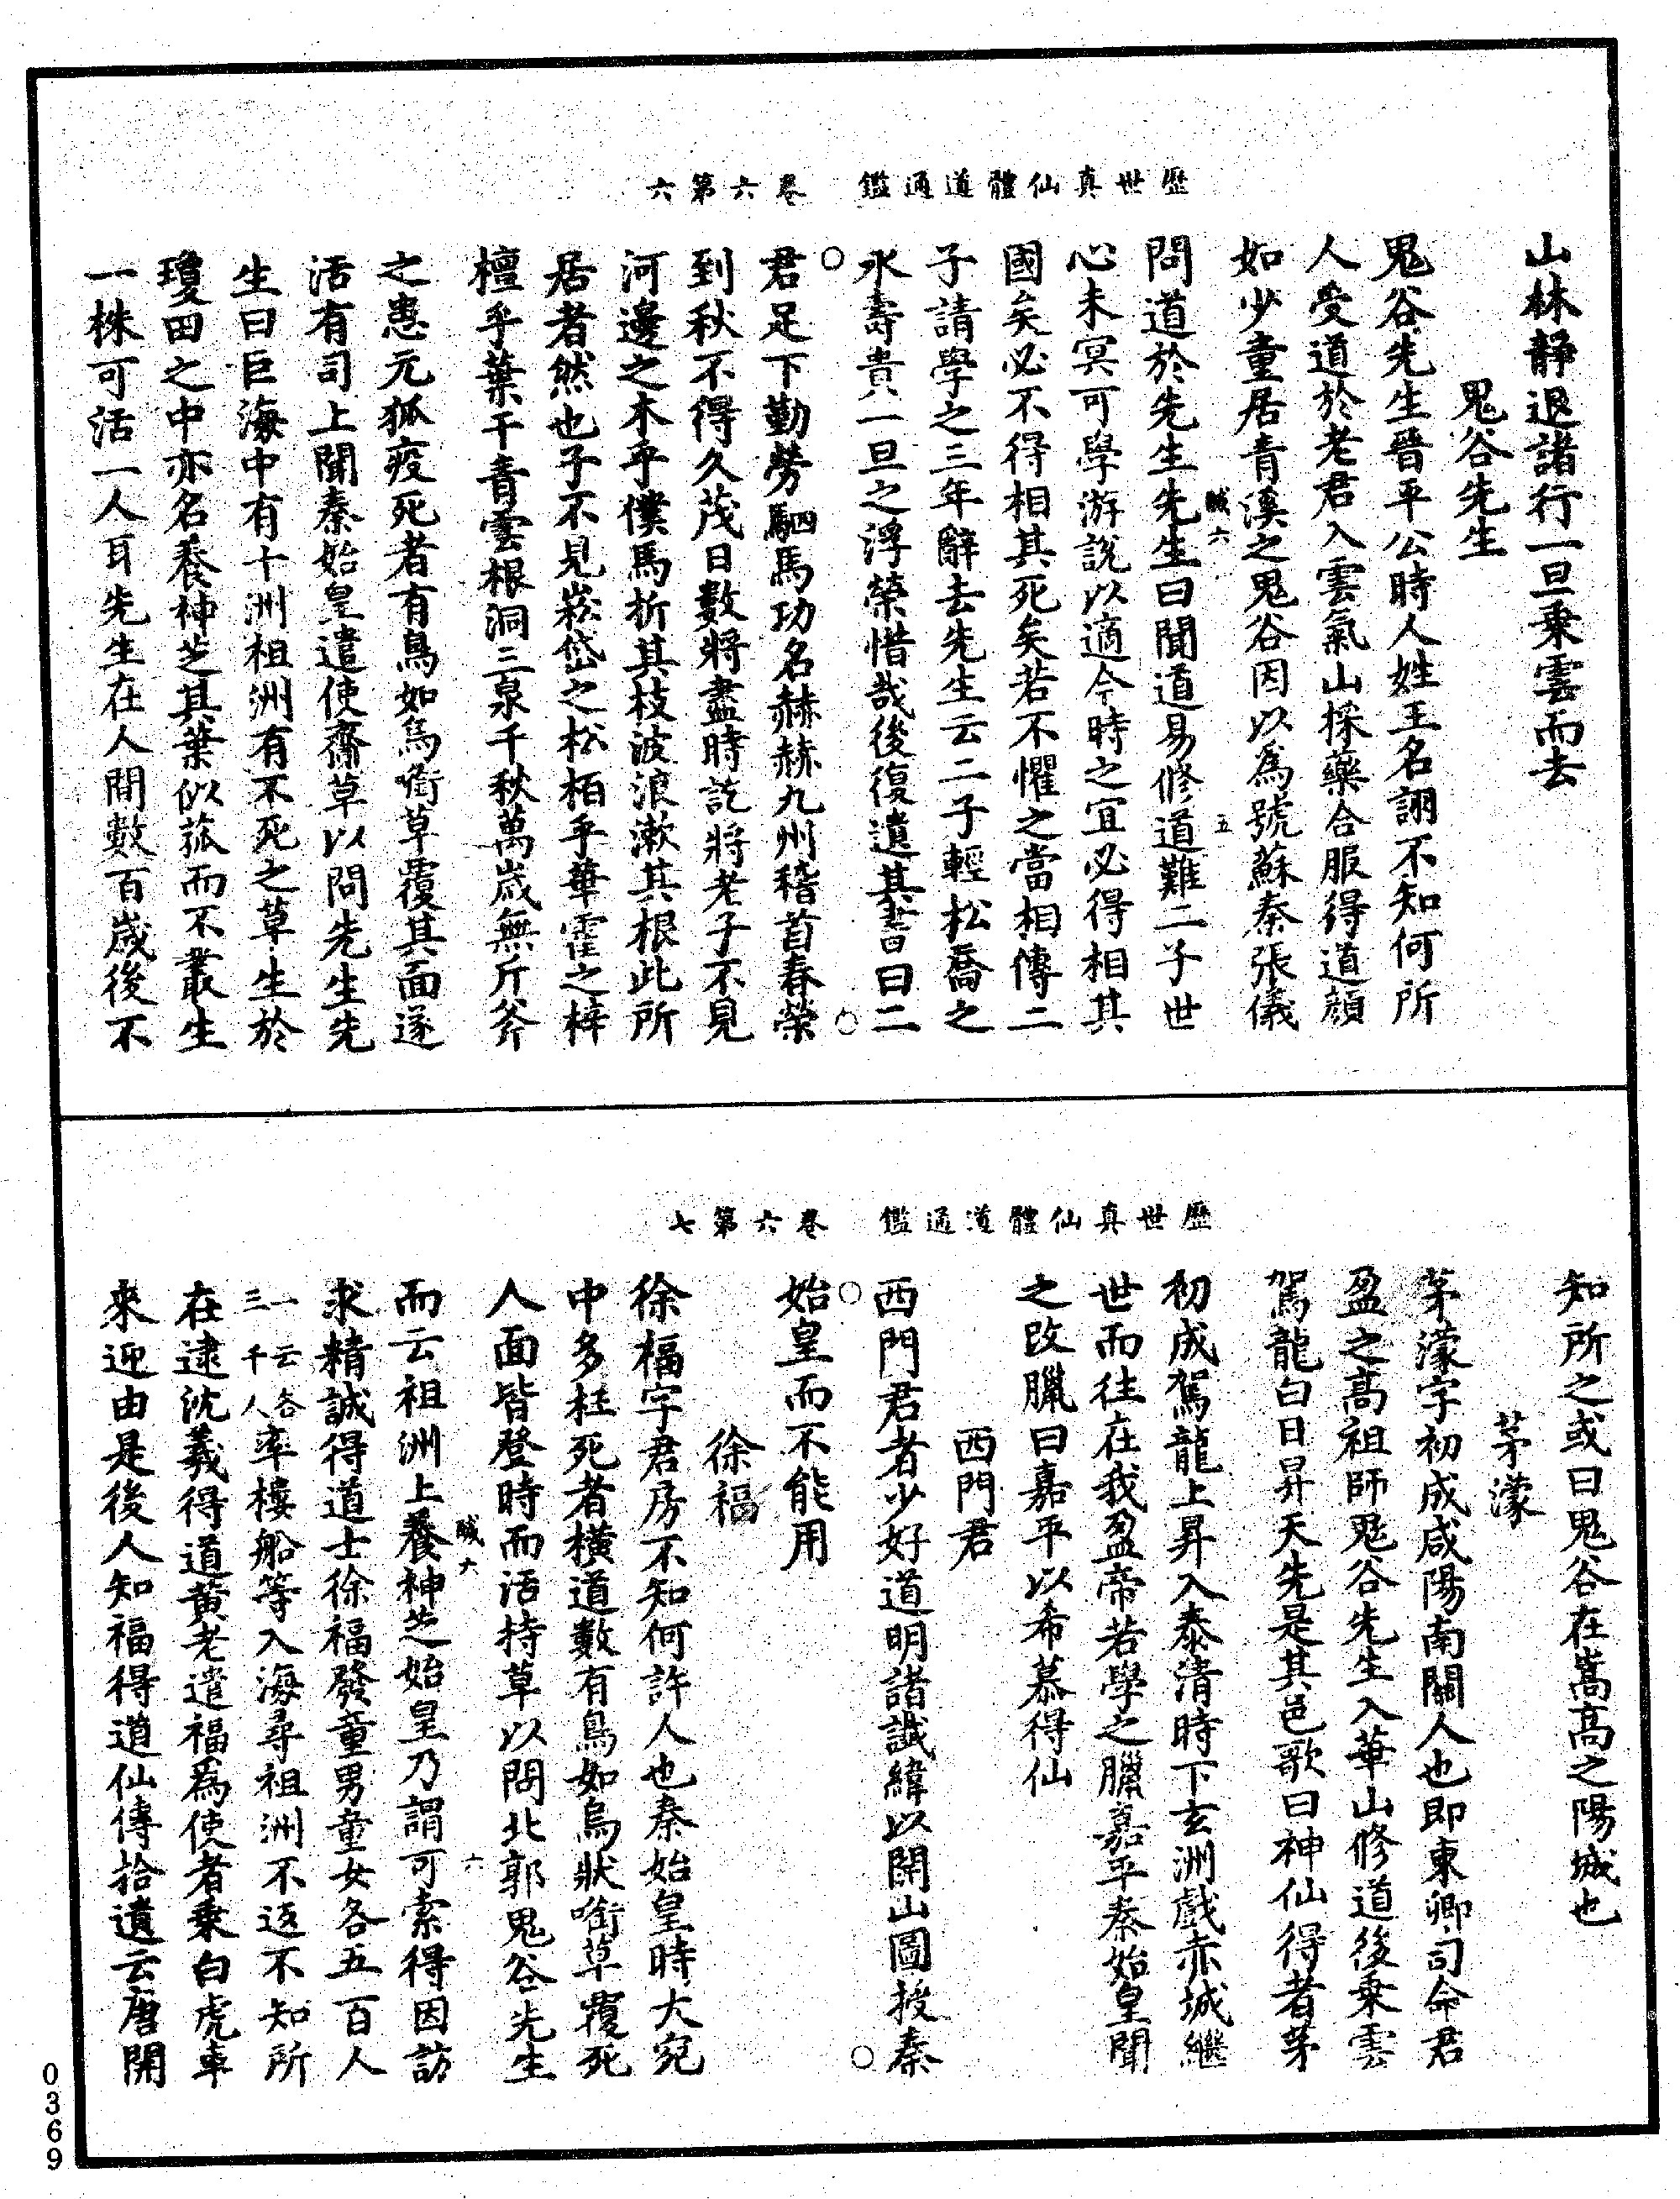 歷世真仙體道通鑑 卷六第六
山林靜退諸行一旦乘雲而去
鬼谷先生
鬼谷先生晉平公時人姓王名詡不知何所
人受道於老君入雲氣山採藥合服得道顏
如少童居青溪之鬼谷因以為號蘇秦張儀
醎六 五
問道於先生先生曰聞道易修道難二子世
心未冥可學游說以適今時之宜必得相其
國矣必不得相其死矣若不懼之當相傳二
子請學之三年辭去先生云二子輕松喬之
永壽貴一旦之浮榮惜哉後復遺其書曰二
君足下勤勞駟馬功名赫赫九州稽首春榮
到秋不得久茂日數將盡時訖將老子不見
河邊之木乎僕馬折其枝波浪漱其根此所
居者然也子不見崧岱之松栢乎華霍之梓
檀乎葉干青雲根洞三泉千秋萬歲無斤斧
之患元狐疫死者有鳥如烏銜草覆其面遂
活有司上聞秦始皇遣使齎草以問先生先
生曰巨海中有十洲祖洲有不死之草生於
瓊田之中亦名養神芝其葉似菰而不叢生
一株可活一人耳先生在人間數百歲後不
歷世真仙體道通鑑 卷六第七
知所之或曰鬼谷在嵩高之陽城也
茅濛
茅濛字初成咸陽南關人也即東卿司命君
盈之高祖師鬼谷先生入華山修道後乘雲
駕龍白日昇天先是其邑歌曰神仙得者茅
初成駕龍上昇入泰清時下玄洲戲赤城繼
世而往在我盈帝若學之臘嘉平秦始皇聞
之改臘曰嘉平以希慕得仙
西門君
西門君者少好道明諸讖緯以開山圖授秦
始皇而不能用
徐福
徐福字君房不知何許人也秦始皇時大宛
中多枉死者橫道數有鳥如烏狀銜草覆死
人面皆登時而活持草以問北郭鬼谷先生
醎六 六
而云祖洲上養神芝始皇乃謂可索得因訪
求精誠得道士徐福發童男童女各五百人
一云各三千人率樓船等入海尋祖洲不返不知所
在逮沈羲得道黃老遣福為使者乘白虎車
來迎由是後人知福得道仙傳拾遺云唐開
0369